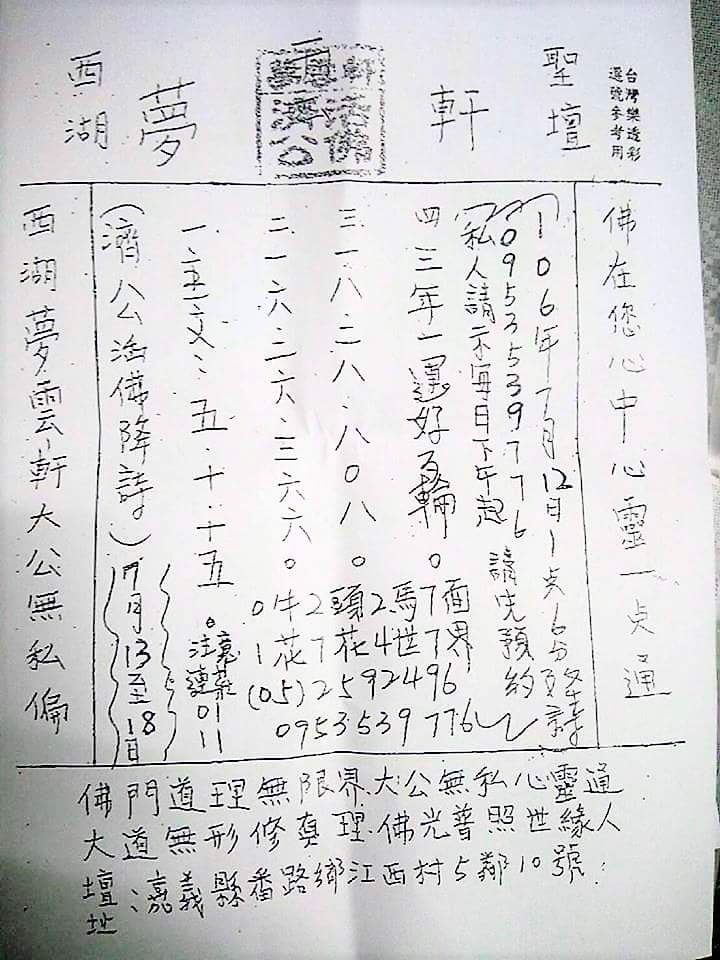 台灣樂透彩
選號參考用
聖壇
軒
雲
濟公活佛
夢
西湖
佛在您心中心靈一点通
(106年7月12日1点6分降詩)
0953539776
(私人請示每日下午起請先預約)
四三年一運好了輪。
三.一八.二八.八0八。
二.一六.二六.三六六。
一.五.十.十五。
注意
連莊
01
11
(濟公活佛降詩)
7月13至18日
0牛2頭2馬7面
1花7花4世7界
(05)2592496
0953539776
西湖夢雲軒大公無私偏
佛門道理無限界.大公無私心靈通
大道無形修真理.佛光普照世緣人
壇址:嘉義縣番路鄉江西村5鄰10號